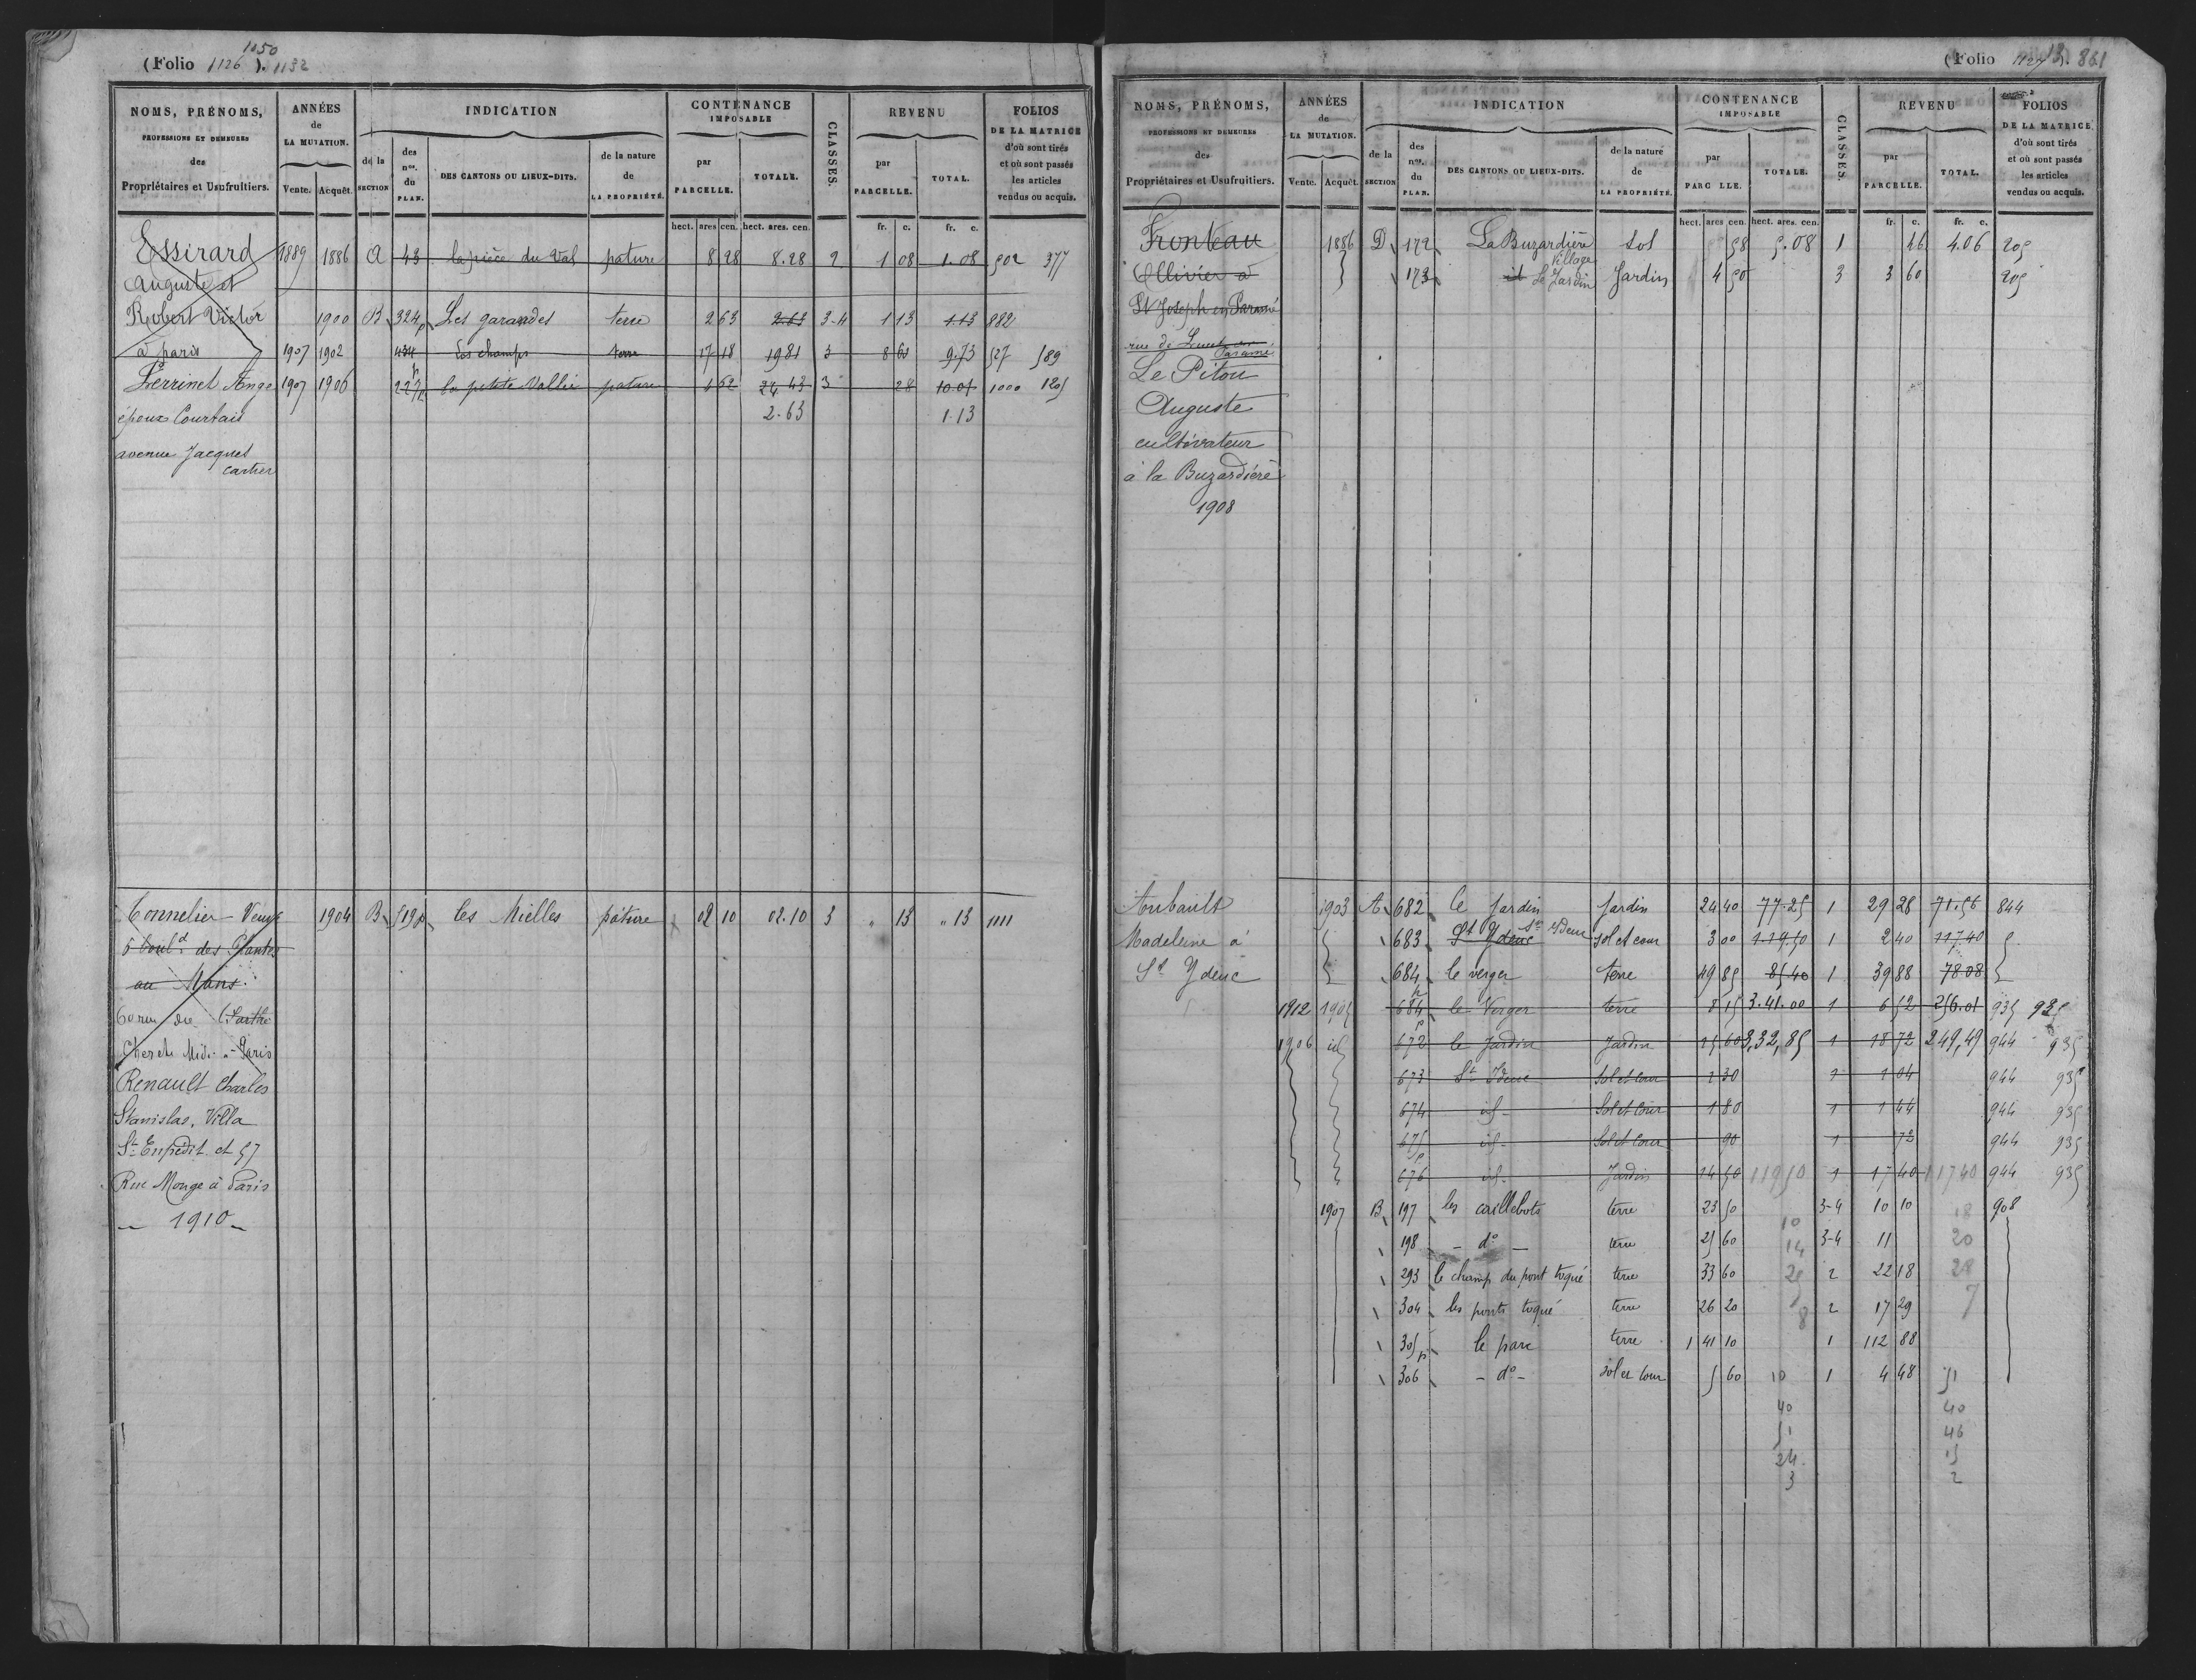 1150
(Folio 1126). 1132
NOMS, PRÉNOMS,
PROFESSIONS ET DEMEURES
des
Propriétaires et Usufruitiers.
ANNÉES
de
LA MUTATION.
Vente. Acquêt.
INDICATION
de la
SECTION
des
nos.
du
PLAN.
DES CANTONS OU LIEUX-DITS.
de la nature
de
LA PROPRIÉTÉ.
CONTENANCE
IMPOSABLE
par
PARCELLE.
TOTALE.
CLASSES.
REVENU
par
PARCELLE.
TOTAL.
FOLIOS
DE LA MATRICE
d'où sont tirés
et où sont passés
les articles
vendus ou acquis.
hect. ares cen. hect. ares. cen. fr. c. fr. c.
Essirard 1889 1886 A 43 la pièce du Val pature 8 28 8.28 2 1 08 1.08 502 377
Auguste et
Robert Victor 1900 B 324p Les garandes terre 2 63 2.63 3-4 1 13 1.13 882
à paris 1907 1902 434 les champs terre 17 18 1981 3 8 61 9.73 527 589
Perrinet Ange 1907 1906 227p la petite Vallée pature 4 62 24 43 3 28 10.01 1000 1205
époux Courtais 2.63 1.13
avenue Jacques
cartier
Tonnelier Veuve 1904 B 519p les Nielles pâture 02 10 02.10 3 " 13 " 13 1111
6 bould des Plantes
au Mans.
60 rue du (Sarthe
Cherche Midi - Paris
Renault Charles
Stanislas, Villa
St Expédit et 57
Rue Monge à Paris
- 1910 -
(Folio 1127). 861
NOMS, PRÉNOMS,
PROFESSIONS ET DEMEURES
des
Propriétaires et Usufruitiers.
ANNÉES
de
LA MUTATION.
Vente. Acquêt.
INDICATION
de la
SECTION
des
nos.
du
PLAN.
DES CANTONS OU LIEUX-DITS.
de la nature
de
LA PROPRIÉTÉ.
CONTENANCE
IMPOSABLE
par
PARC LLE.
TOTALE.
CLASSES.
REVENU
par
PARCELLE.
TOTAL.
FOLIOS
DE LA MATRICE
d'où sont tirés
et où sont passés
les articles
vendus ou acquis.
hect. ares cen. hect. ares. cen. fr. c. fr. c.
Fronteau 1886 D 172 La Buzardière Sol 58 5.08 1 46 4.06 205
village
Ollivier à 173 id Le Jardin Jardin 4 50 3 3 60 205
St Joseph en Paramé
rue de
Paramé
Le Pitou
Auguste
cultivateur
à la Buzardière
1908
Aubault 1903 A 682 le Jardin Jardin 24 40 77.25 1 29 28 71.56 844
Madeleine à 683 St Ydeuc St Ydeuc sol et cour 3 00 1.19.50 1 2 40 117.40
St Ydeuc 684 le verger terre 49 85 85 40 1 39 88 78.08
1912 1905 684p le Verger terre 8 15 3.41.00 1 6 52 256.01 935 925
1906 id 672p le Jardin Jardin 15 60 3,32,85 1 18 72 249,49 944 935
673 St Ideuc Sol et cour 1 30 1 1 04 944 935
674 id - Sol et Cour 1 80 1 1 44 944 935
675 id - Sol et Cour 90 1 72 944 935
676p id - Jardin 14 50 119 50 1 17 40 117 40 944 935
1907 B 197 les caillebots terre 23 50 3-4 10 10 18 908
198 - do - terre 25 60 10 14 3-4 11 20
293 le champ du pont toqué terre 33 60 2 22 18 28
304 les ponts toqué terre 26 20 8 2 17 29 7
305p le parc terre 1 41 10 1 112 88
306 - do - sol et cour 5 60 10 1 4 48 51
40 40
51 46
24 15
3 2